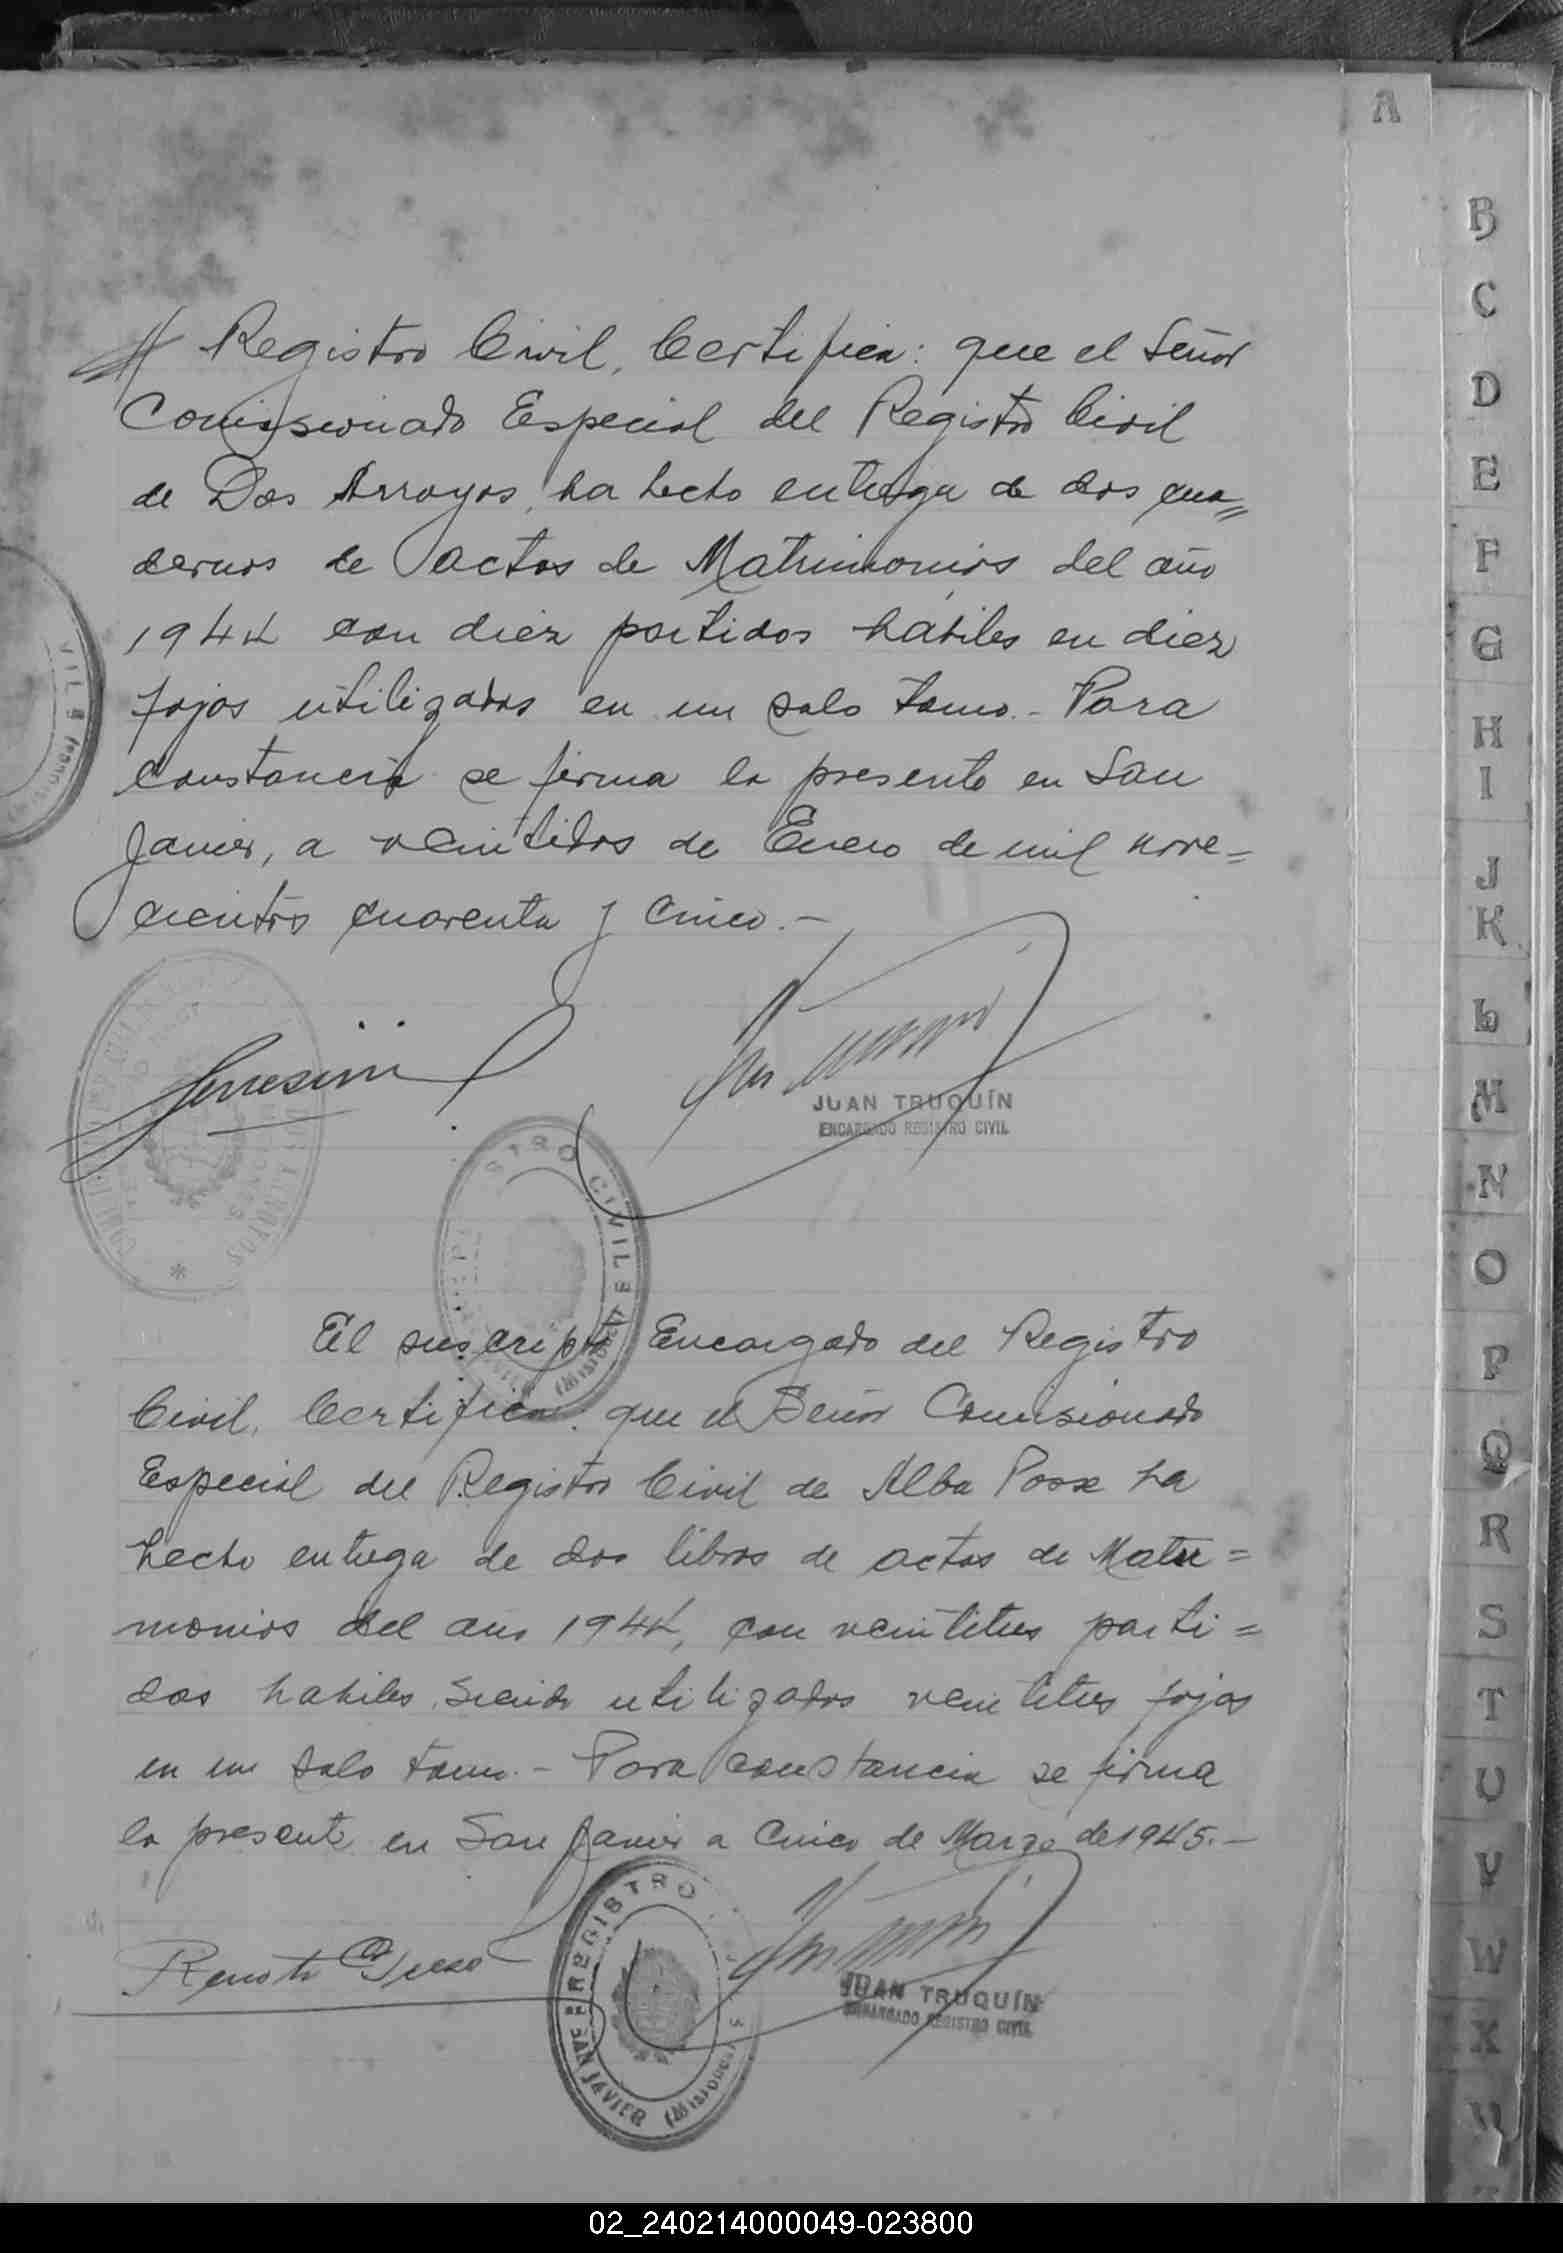 A
B
C
D
E
F
G
H
I
J
K
L
M
N
O
P
Q
R
S
T
U
V
W
X
Y
// Registro Civil, Certifica: que el Señor
Comissionado Especial del Registro Civil
de Dos Arroyos, ha hecho entrega de dos cua=
dernos de actas de Matrimonios del año
1944 con diez partidas hábiles en diez
fojas utilizadas en un solo tomo.- Para
constancia se firma la presente en San
Javier, a veintidos de Enero de mil nove=
cientos cuarenta y cinco.-
JUAN TRUQUÍN
ENCARGADO REGISTRO CIVIL
REGISTRO CIVIL
El suscripto Encargado del Registro
Civil, Certifica: que el Señor Comisionado
Especial del Registro Civil de Alba Posse ha
hecho entrega de dos libros de actas de Matri=
monios del año 1944, con veintitres parti=
das habiles, siendo utilizados veintitres fojas
en un solo tomo.- Para constancia se firma
la presente en San Javier a cinco de Marzo de 1945.-
JUAN TRUQUÍN
ENCARGADO REGISTRO CIVIL
REGISTRO
SAN JAVIER (Misiones)
02_240214000049-023800